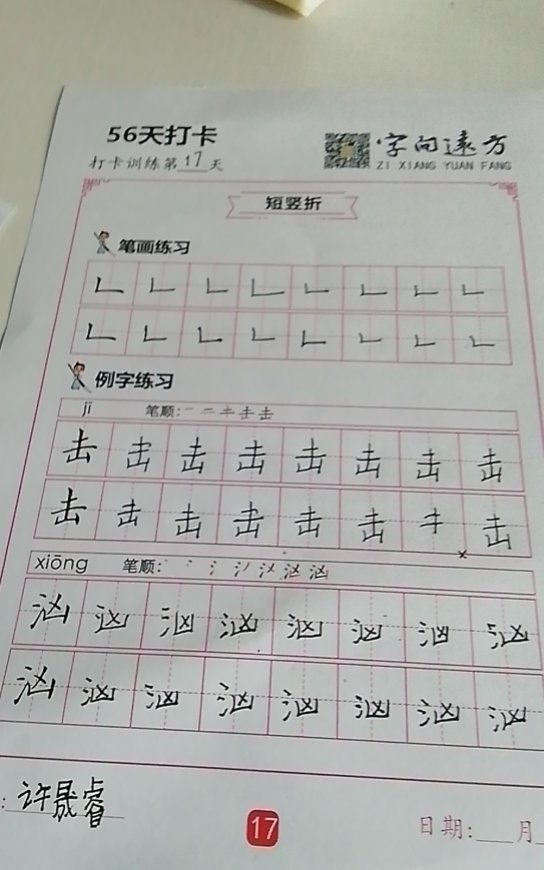 56天打卡
打卡训练第17天
字向远方
ZI XIANG YUAN FANG
短竖折
笔画练习
𠃊 𠃊 𠃊 𠃊 𠃊 𠃊 𠃊 𠃊
𠃊 𠃊 𠃊 𠃊 𠃊 𠃊 𠃊 𠃊
例字练习
jī 笔顺:
击 击 击 击 击 击 击 击
击 击 击 击 击 击 キ 击
xiōng 笔顺:
汹 汹 汹 汹 汹 汹 汹 汹
汹 汹 汹 汹 汹 汹 汹 汹
: 许晟睿
17
日期: 月